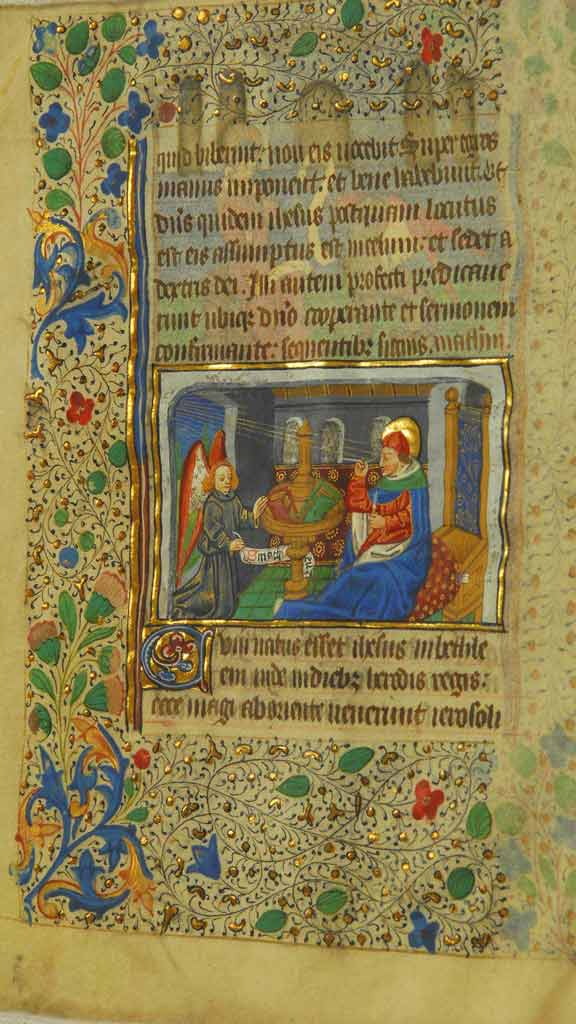 quid biberint: non eis nocebit. Super egros
manus imponent: et bene habebunt. Et
dñs quidem ihesus postquam locutus
est eis assumptus est in celum: et sedet a
dextris dei. Illi autem profecti predicaue
runt ubiqȝ dño cooperante et sermonem
confirmante: sequentibȝ signis.
math
Cum natus esset ihesus in bethle
em iude in diebȝ herodis regis:
ecce magi ab oriente uenerunt ierosoli